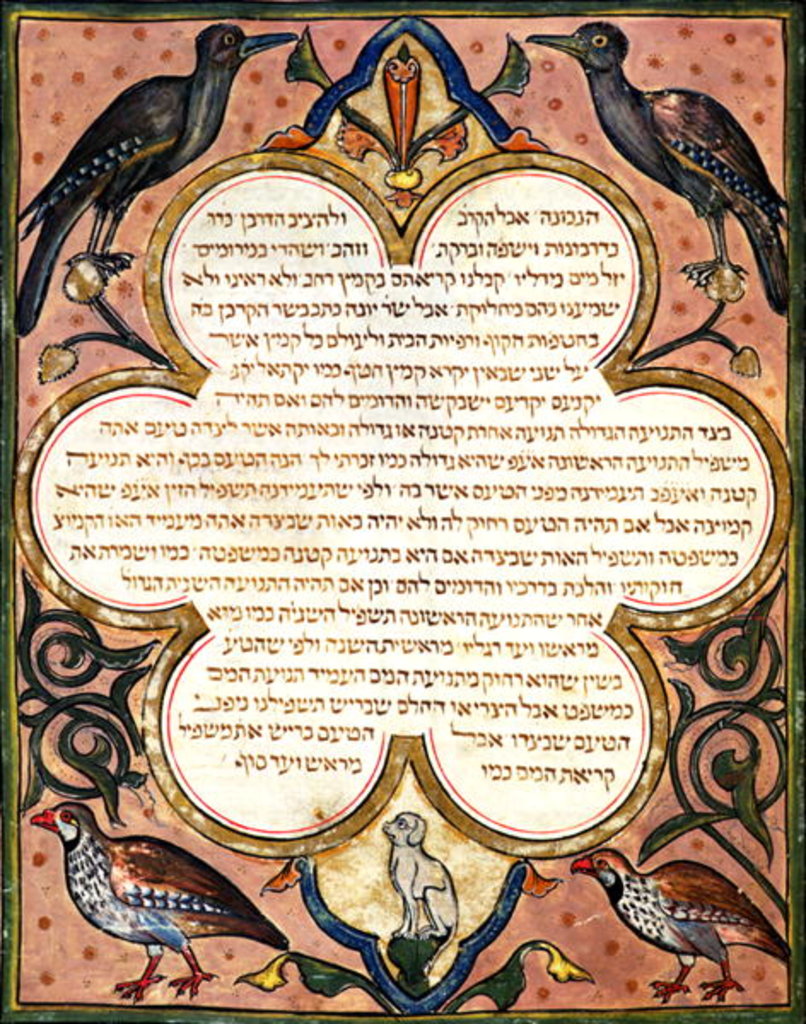 הנכונה׳ אבל הקרב ולהציב הדרבן כיו
בדרבונות וישופה וברקת וזהב׳ ושהדי במרומים
יזל מים מדליו׳ קבלנו קריאתם בקמץ רחב׳ ולא ראינו ולא
שמענו בהם מחלוקת׳ אבל שר׳ יונה כתב הקרבן בה
בחטפות הקוף ורפיות הבית ולעולם כל קמץ אשר
על שני שבאין יקרא קמץ חטף כמו יקתאל
יקנעם יקדעם והדומים להם ואם תהיה
בצד התנועה הגדולה תנועה אחרת קטנה או גדולה ובאותה אשר לצדה טעם אתה
משפיל התנועה הראשונה אע̇פ שהיא גדולה כמו זכרתי לך הנה הטעם בכף והיא תנועה
קטנה ואעפ̇כ תעמידנה מפני הטעם אשר בה׳ ולפי שתעמידנה תשפיל הזין אע̇פ שהיא
קמוצה אבל אם תהיה הטעם רחוק לה ולא יהיה באות שבצדה אתה מעמיד האו הקמוצ
כמשפטה ותשפיל האות שבצדה אם היא בתנועה קטנה כמשפטה׳ כמו ושמרת את
חוקותיו והלכת בדרכיו והדומים להם וכן אם תהיה התנועה השנית הגדול
אחר שהתנועה הראשונה תשפיל השניה כמו
מראשו ועד רגליו׳ מראשית השנה ולפי שהטע
בשין שהוא רחוק מתנועת המם העמיד תנועת המם
כמשפט אבל ההלם שבריש תשפילנו מפנ
הטעם שבצדו׳ אבל הטעם בריש את משפיל
קריאת המם כמו מראש ועד סוף׳